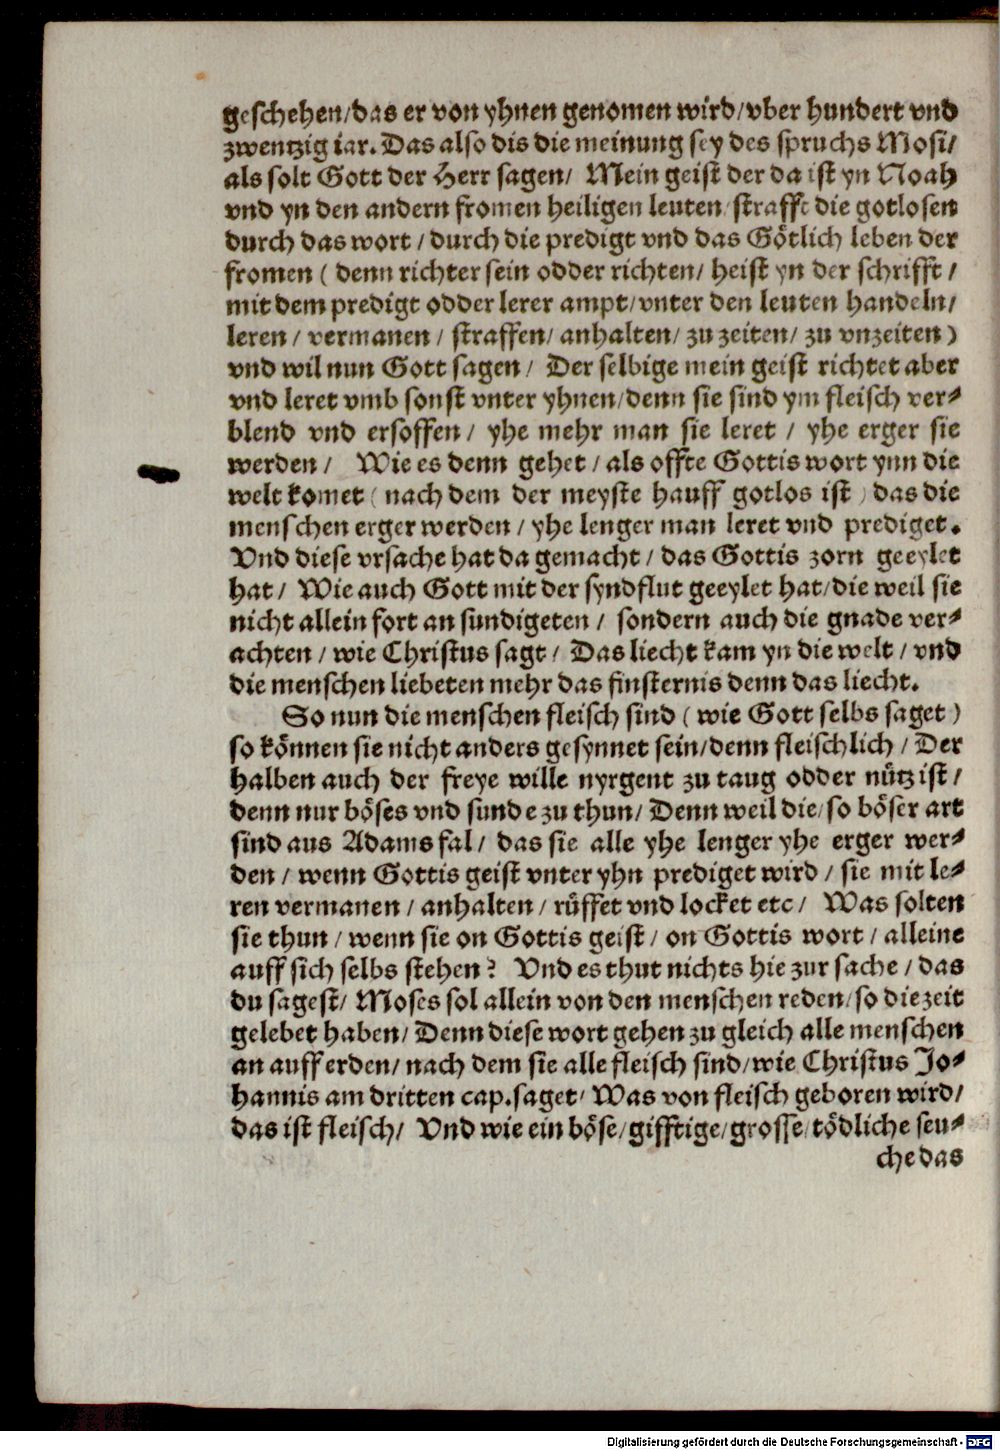 geschehen/das er von yhnen genomen wird/vber hundert vnd
zwentzig iar. Das also dis die meinung sey des spruchs Mosi/
als solt Gott der Herr sagen/ Mein geist der da ist yn Noah
vnd yn den andern fromen heiligen leuten/straffe die gotlosen
durch das wort/durch die predigt vnd das Götlich leben der
fromen (denn richter sein odder richten/ heist yn der schrifft/
mit dem predigt odder lerer ampt/vnter den leuten handeln/
leren/ vermanen/ straffen/ anhalten/ zu zeiten/ zu vnzeiten)
vnd wil nun Gott sagen/ Der selbige mein geist richtet aber
vnd leret vmb sonst vnter yhnen/denn sie sind ym fleisch ver-
blend vnd ersoffen/ yhe mehr man sie leret/ yhe erger sie
werden/ Wie es denn gehet/als offte Gottis wort ynn die
welt komet (nach dem der meyste hauff gotlos ist) das die
menschen erger werden/ yhe lenger man leret vnd prediget.
Vnd diese vrsache hat da gemacht/ das Gottis zorn geeylet
hat/ Wie auch Gott mit der syndflut geeylet hat/die weil sie
nicht allein fort an sundigeten/ sondern auch die gnade ver-
achten/ wie Christus sagt/ Das liecht kam yn die welt/ vnd
die menschen liebeten mehr das finsternis denn das liecht.
So nun die menschen fleisch sind (wie Gott selbs saget)
so können sie nicht anders gesynnet sein/denn fleischlich/ Der
halben auch der freye wille nyrgent zu taug odder nütz ist/
denn nur böses vnd sunde zu thun/ Denn weil die/so böser art
sind aus Adams fal/ das sie alle yhe lenger yhe erger wer-
den/ wenn Gottis geist vnter yhn prediget wird/ sie mit le-
ren vermanen/ anhalten/ rüffet vnd locket etc/ Was solten
sie thun/ wenn sie on Gottis geist/ on Gottis wort/ alleine
auff sich selbs stehen? Vnd es thut nichts hie zur sache/ das
du sagest/ Moses sol allein von den menschen reden/so die zeit
gelebet haben/ Denn diese wort gehen zu gleich alle menschen
an auff erden/ nach dem sie alle fleisch sind/wie Christus Jo-
hannis am dritten cap. saget/ Was von fleisch geboren wird/
das ist fleisch/ Vnd wie ein böse/gifftige/grosse/tödliche seu-
che das
Digitalisierung gefördert durch die Deutsche Forschungsgemeinschaft - DFG